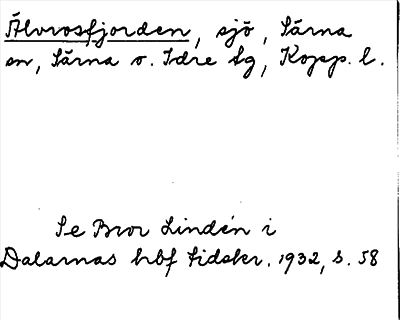 Älvrosfjorden, sjö, Särna
sn, Särna o. Idre tg, Kopp. l.
Se Bror Lindén i
Dalarnas hbf tidskr. 1932, s. 58